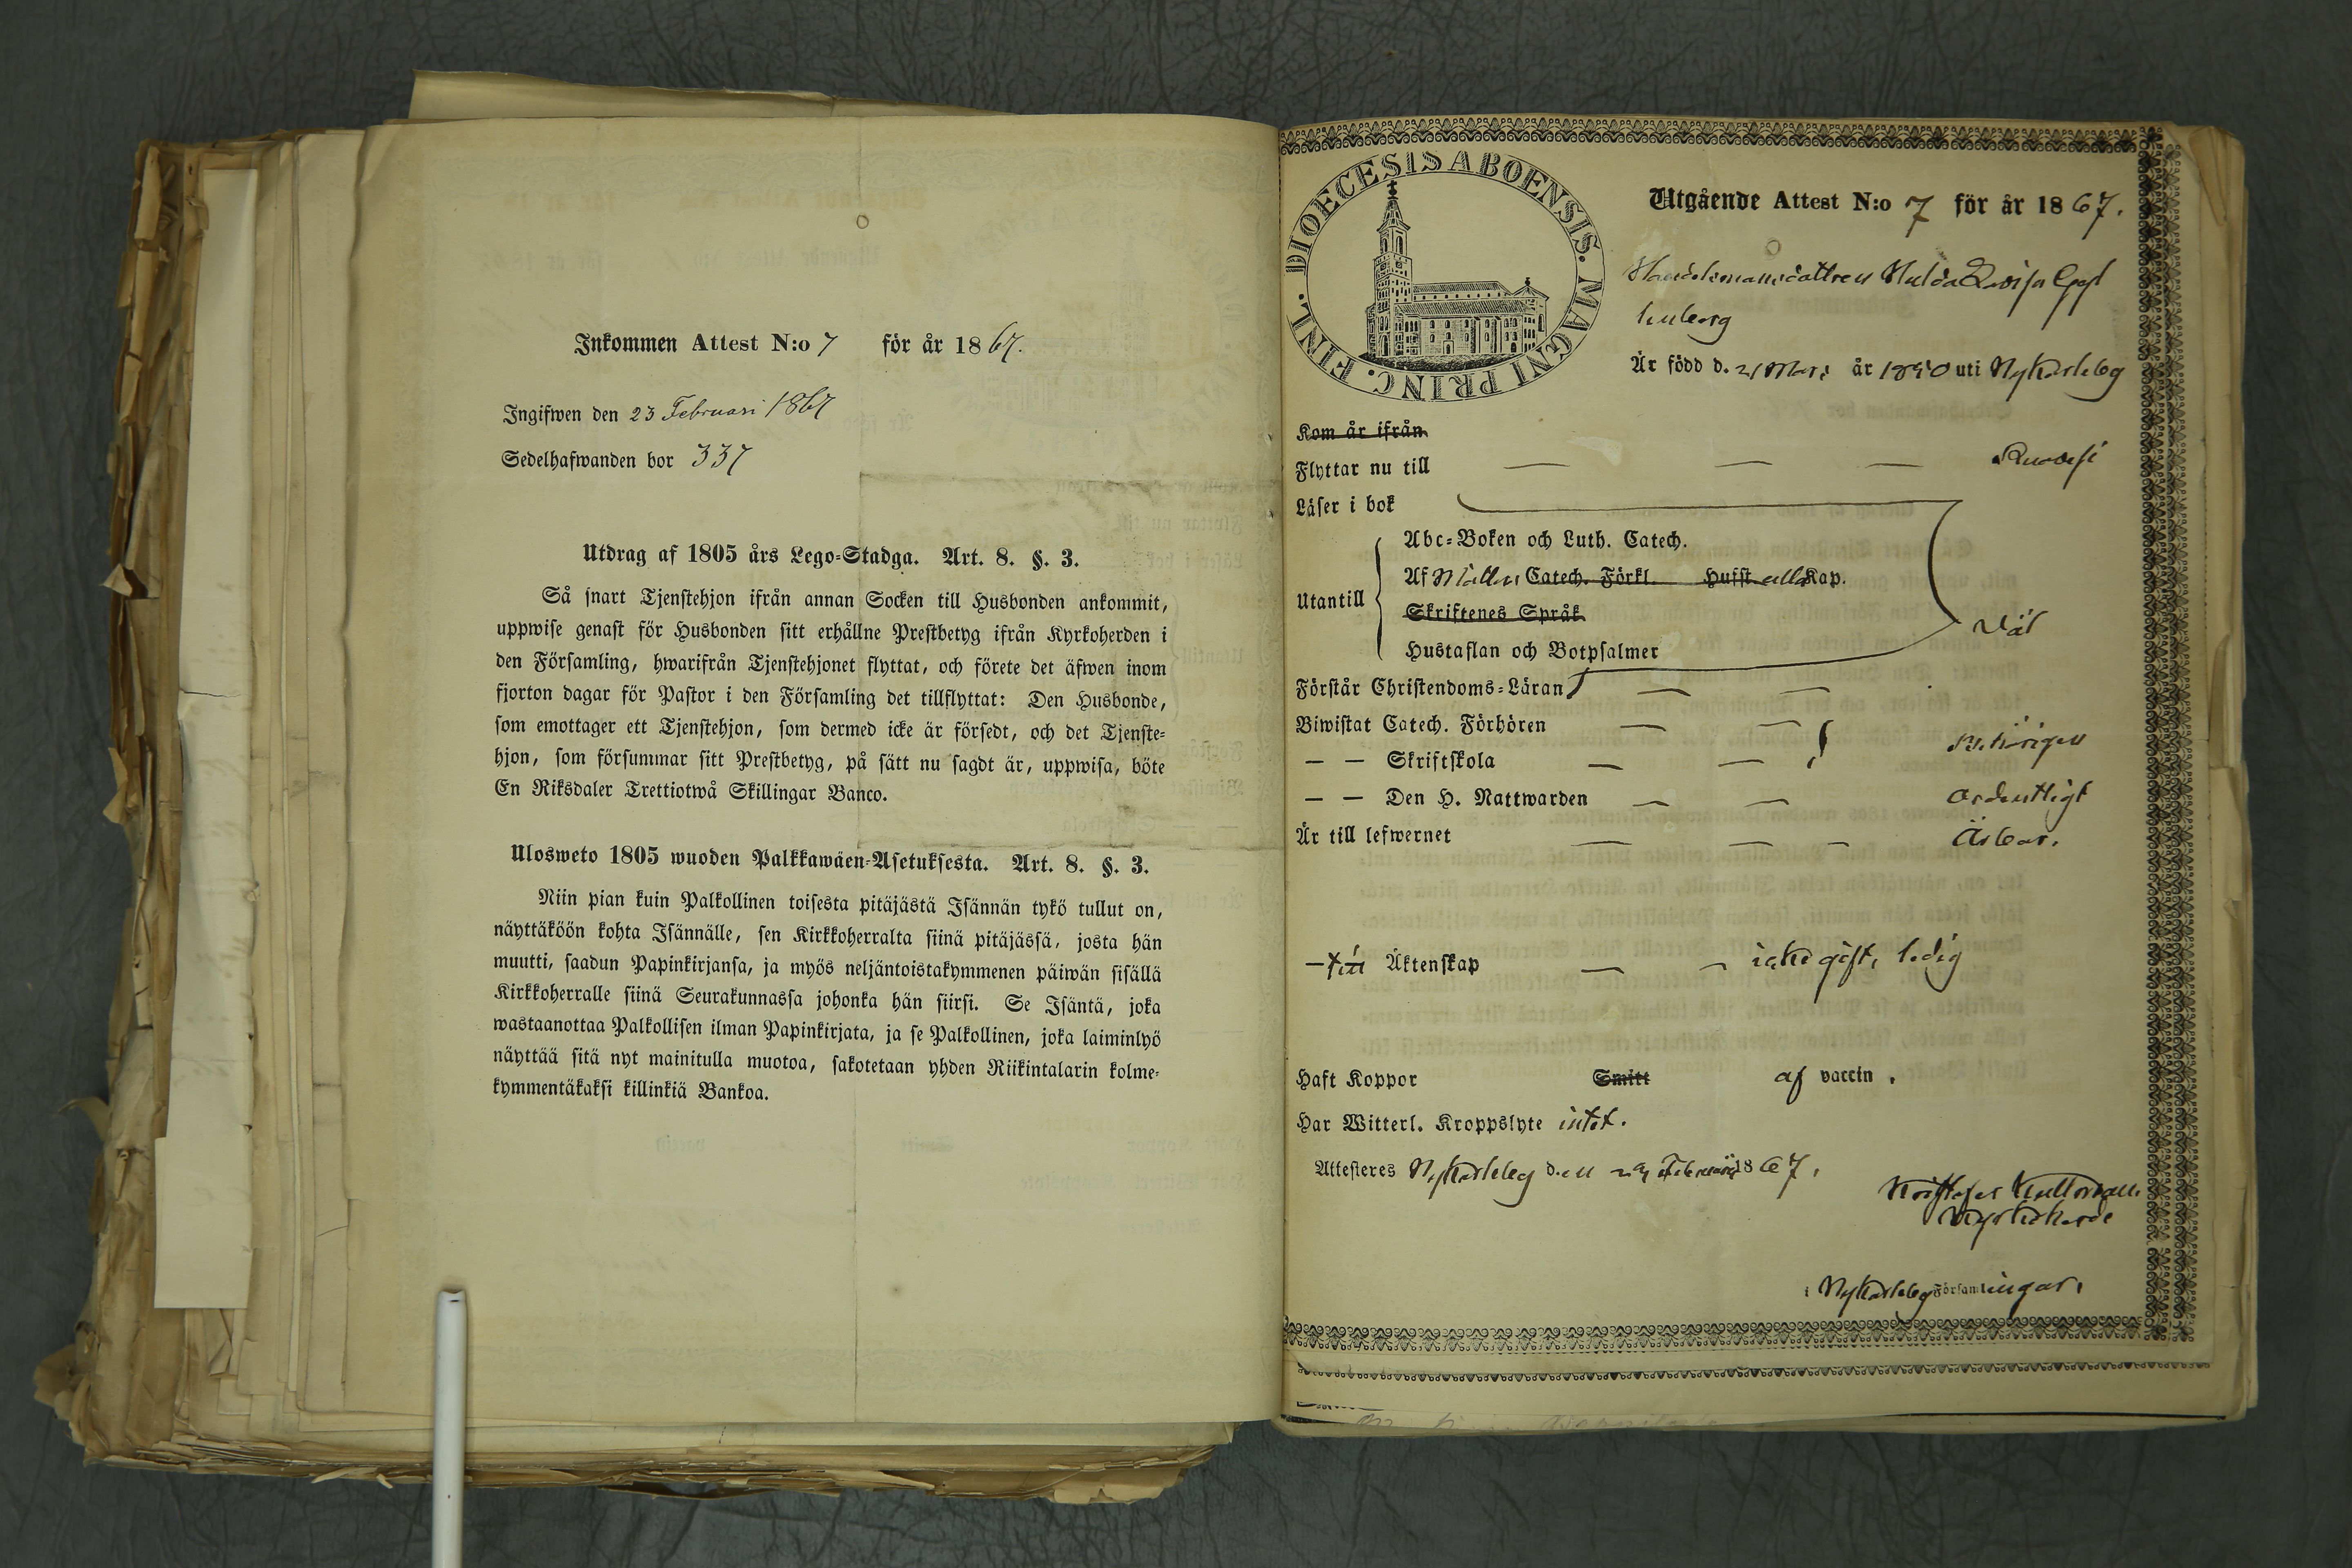 Inkommen Attest N:o 7 för år 1867.
Ingifwen den 23 Februari 1867
Sedelhafwanden bor 337
Utdrag af 1805 års Lego-Stadga. Art. 8. §. 3.
Så snart Tjenstehjon ifrån annan Socken till Husbonden ankommit,
uppwise genast för Husbonden sitt erhållne Prestbetyg ifrån Kyrkoherden i
den Församling, hwarifrån Tjenstehjonet flyttat, och förete det äfwen inom
fjorton dagar för Pastor i den Församling det tillflyttat: Den Husbonde,
som emottager ett Tjenstehjon, som dermed icke är försedt, och det Tjenste-
hjon, som försummar sitt Prestbetyg, på sätt nu sagdt är, uppwisa, böte
En Riksdaler Trettiotwå Skillingar Banco.
Ulosweto 1805 wuoden Palkkawäen-Asetuksesta. Art. 8. §. 3.
Niin pian kuin Palkollinen toisesta pitäjästä Isännän tykö tullut on,
näyttäköön kohta Isännälle, sen Kirkkoherralta siinä pitäjässä, josta hän
muutti, saadun Papinkirjansa, ja myös neljäntoistakymmenen päiwän sisällä
Kirkkoherralle siinä Seurakunnassa johonka hän siirsi. Se Isäntä, joka
wastaanottaa Palkollisen ilman Papinkirjata, ja se Palkollinen, joka laiminlyö
näyttää sitä nyt mainitulla muotoa, sakotetaan yhden Riikintalarin kolme-
kymmentäkaksi killinkiä Bankoa.
FINL. DIOECESIS ABOENSIS. MAGNI PRINC.
Utgående Attest N:o 7 för år 1867.
Handelsmansdottren Hulda Lovisa
Är född d. 21 år 1850 uti Nykarleby
Kom år ifrån
Flyttar nu till Ruovesi
Läser i bok
Abc-Boken och Luth. Catech.
Af Möllers Catech. Förkl. Hufst. alla Kap.
Utantill
Skriftenes Språk
Hustaflan och Botpsalmer
Väl
Förstår Christendoms-Läran
Biwistat Catech. Förhören
— — Skriftskola behörigen
— — Den H. Nattwarden ordentligt
Är till lefwernet Ärbar.
— till Äktenskap icke gift, ledig
Haft Koppor Smitt af vaccin.
Har Witterl. Kroppslyte intet.
Attesteres Nykarleby den Februari 1867.
Kyrkoherde
i Nykarleby Församlingar.